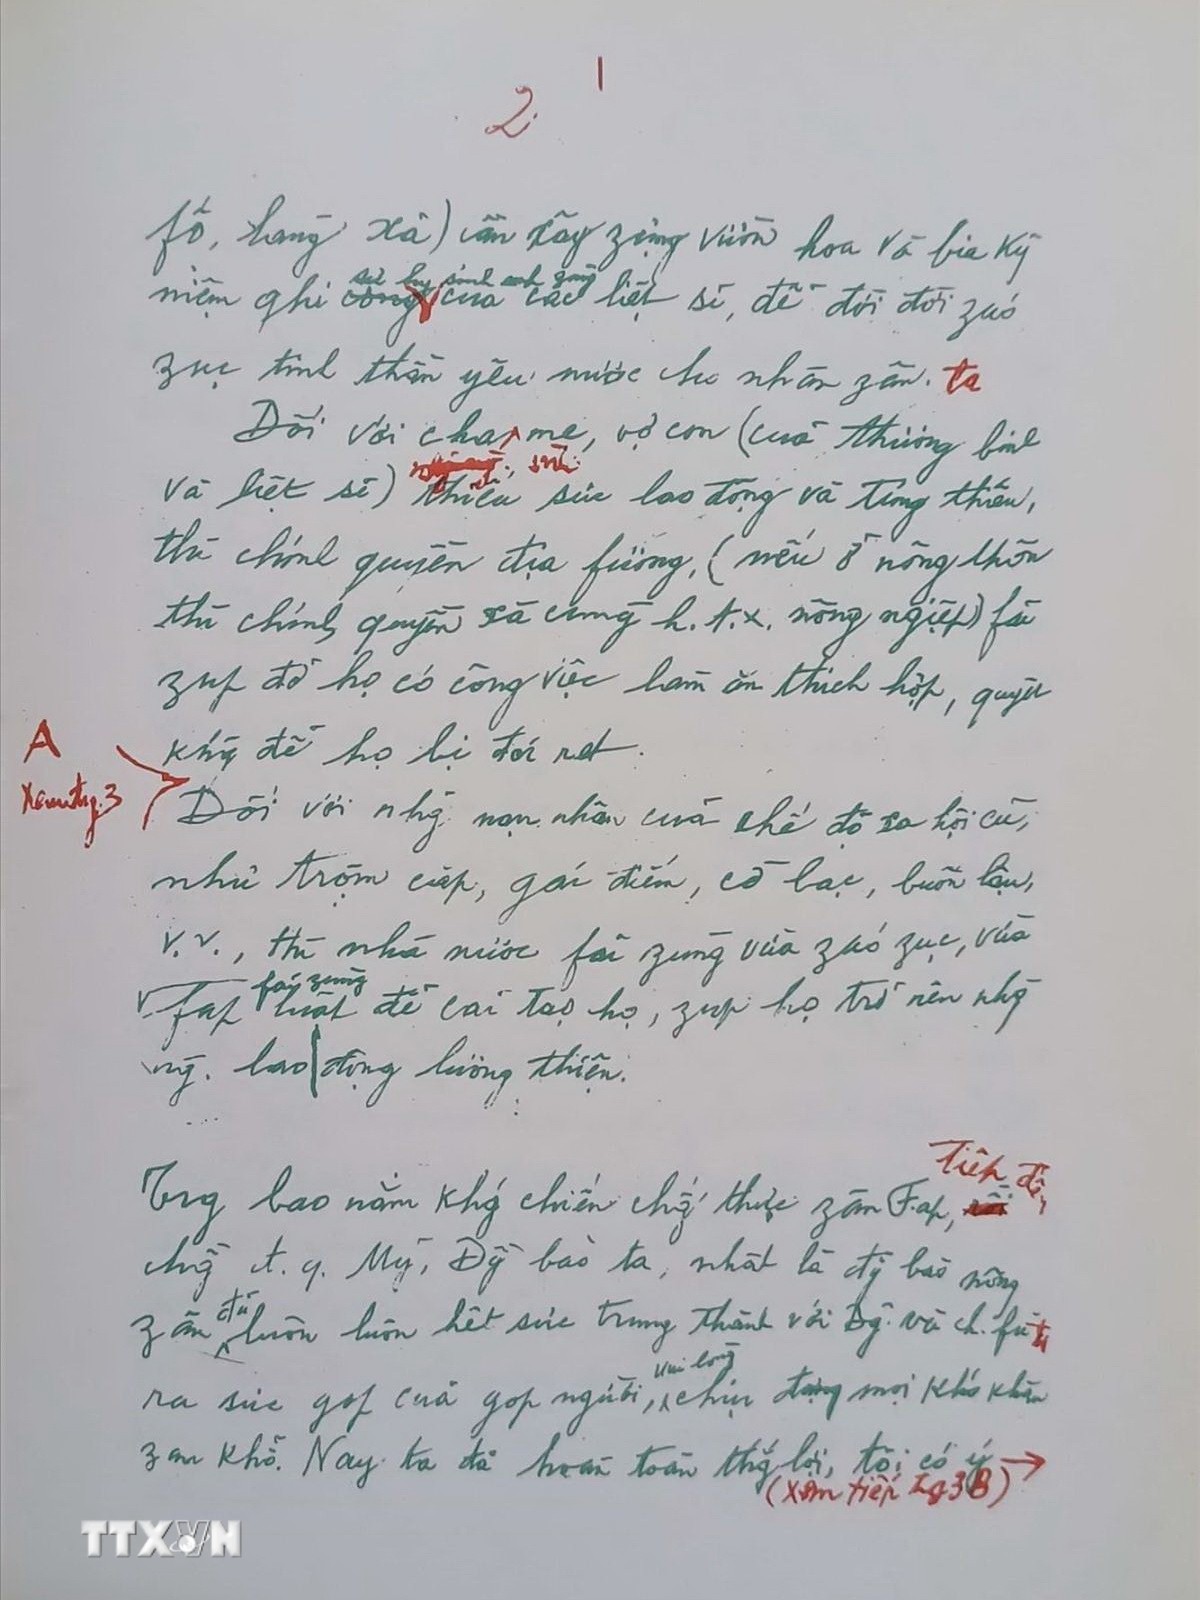 1
2.
fố, làng xã) cần xây zựng vườn hoa và bia kỷ
sự hy sinh anh zũng
niệm ghi công của các liệt sĩ, để đời đời záo
zục tinh thần yêu nước cho nhân zân. ta
Đối với cha, mẹ, vợ con (của thương binh
và liệt sĩ) thiếu sức lao động và túng thiếu,
thì chính quyền địa fương, (nếu ở nông thôn
thì chính quyền xã cùng h.t.x. nông nghiệp) fải
zúp đỡ họ có công việc làm ăn thích hợp, quyết
A
khg để họ bị đói rét.
Xem trg. 3
Đối với nhg nạn nhân của chế độ xã hội cũ,
như trộm cắp, gái điếm, cờ bạc, buôn lậu,
v.v., thì nhà nước fải zùng vừa záo zục, vừa
fải zùng
fáp luật để cải tạo họ, zúp họ trở nên nhg
ng. lao động lương thiện.
tiếp đến
Trg bao năm khg chiến chg thực zân Fáp,
chg đ.q. Mỹ, Đg bào ta, nhất là đg bào nông
đã
zân luôn luôn hết sức trung thành với Đg. và ch. fủ ta
vui lòng
ra sức góp của góp người, chịu đựng mọi khó khăn
zan khổ. Nay ta đã hoàn toàn thg lợi, tôi có ý →
(Xem tiếp Tg 3B)
TTXVN